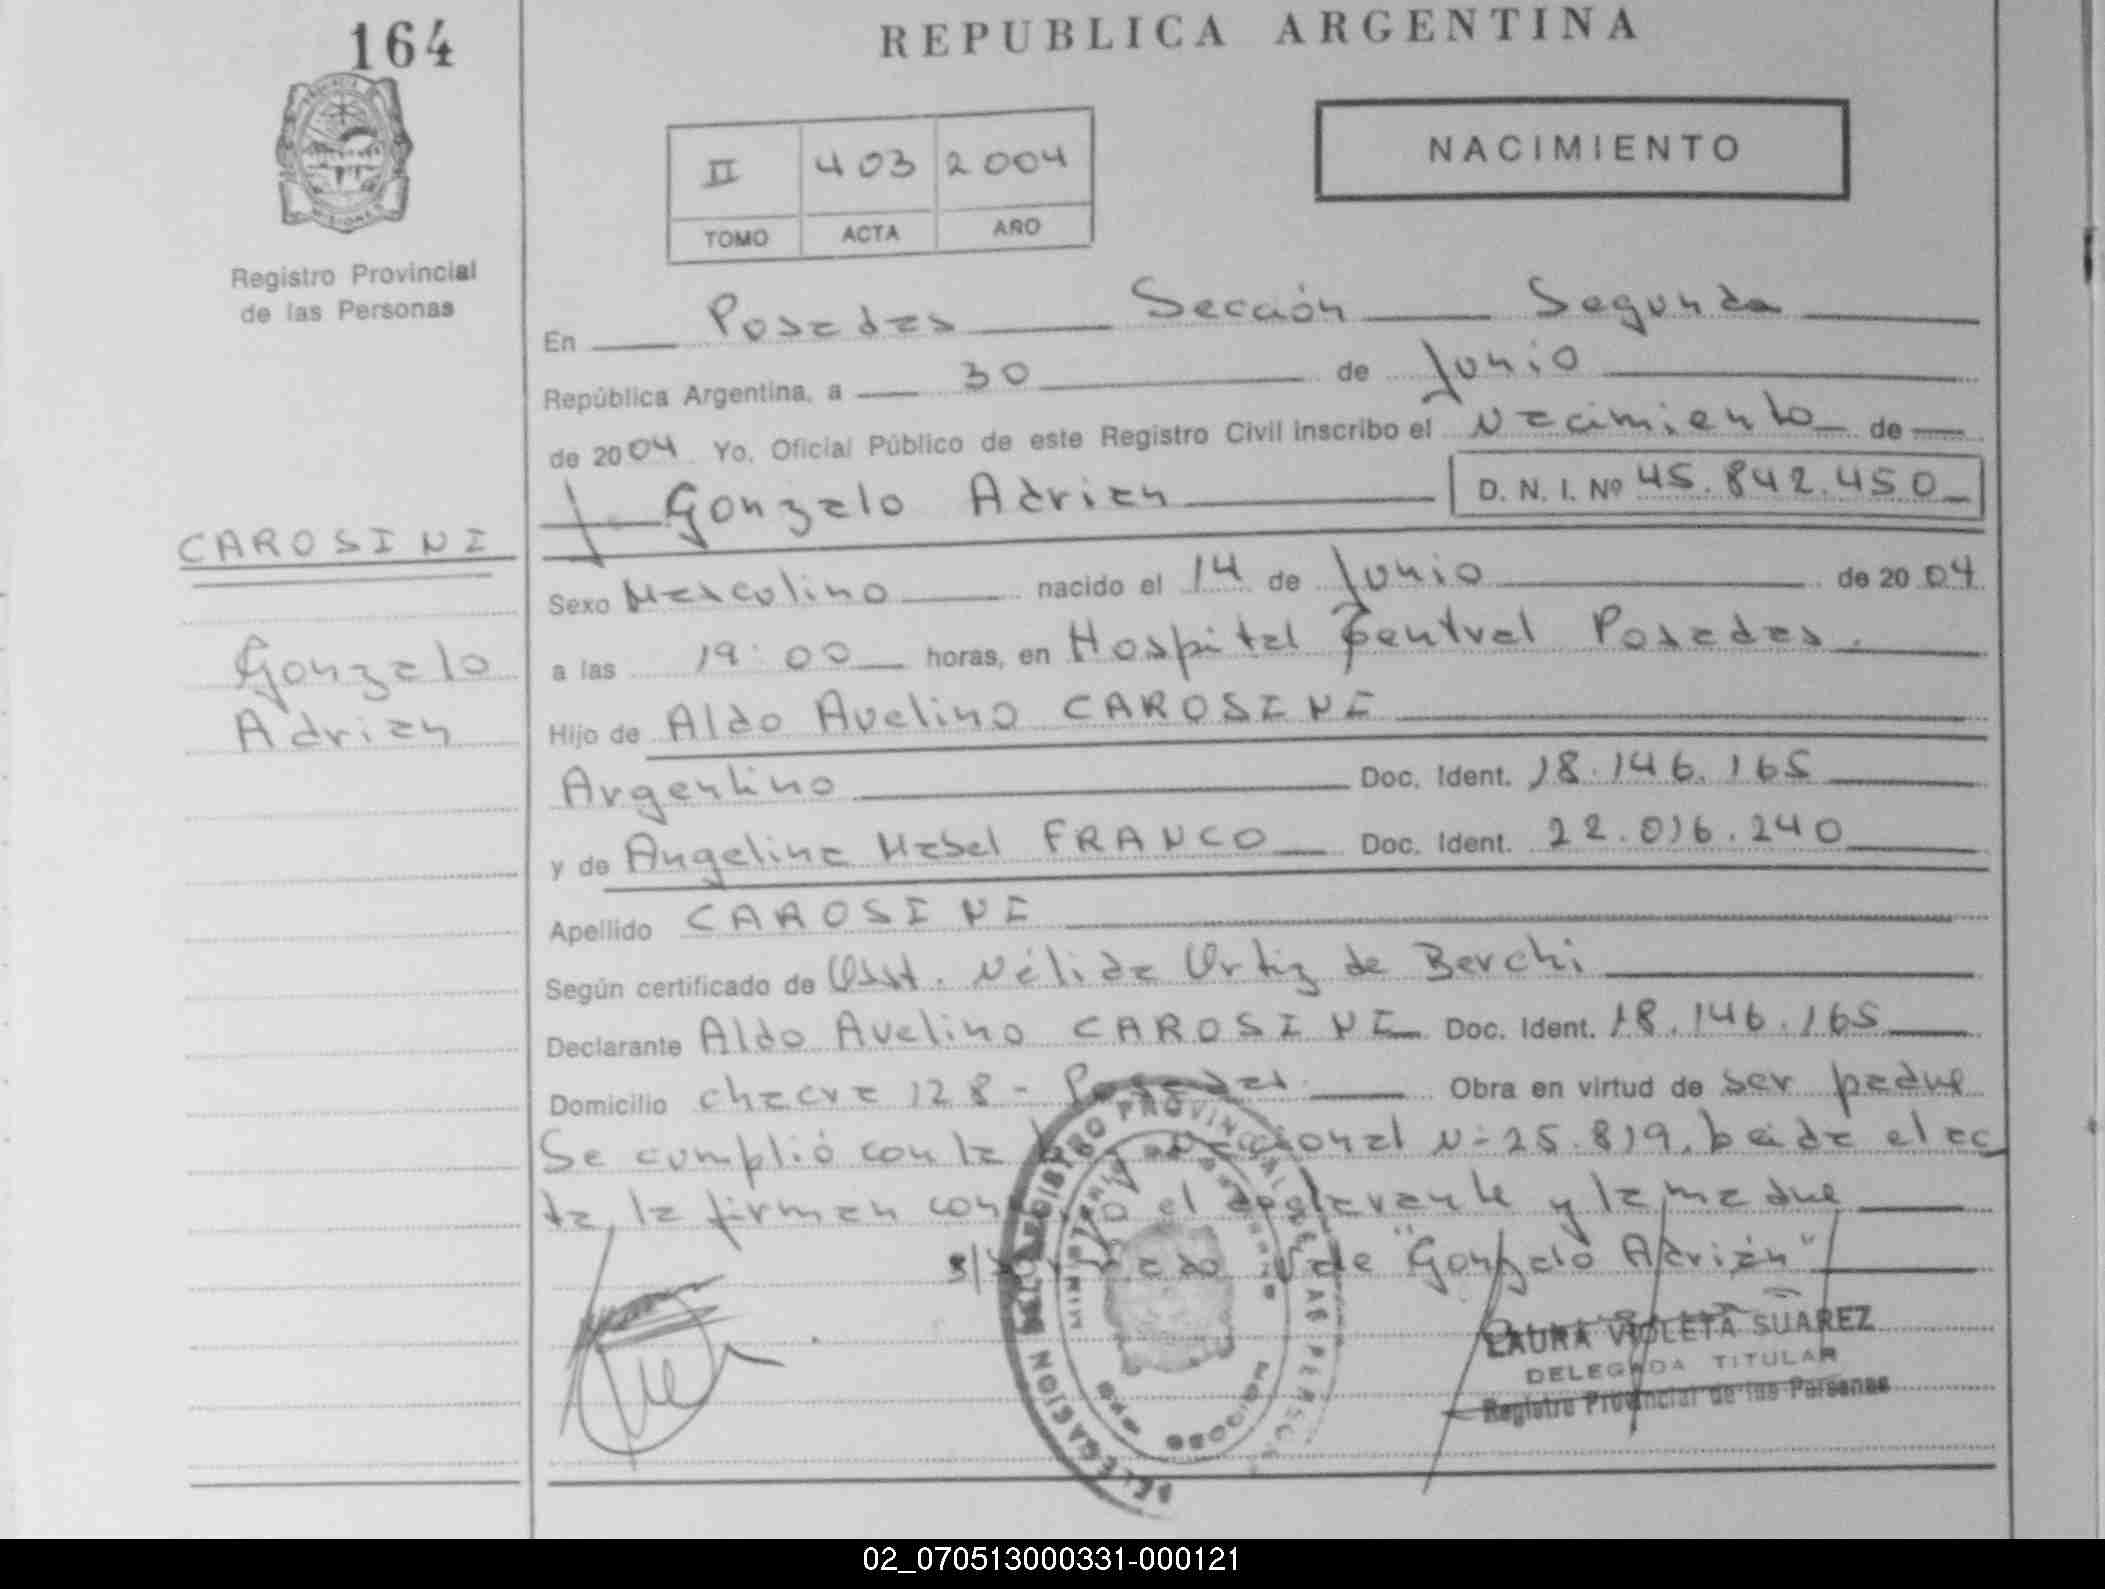 164
REPUBLICA ARGENTINA
NACIMIENTO
II 403 2004
TOMO ACTA AÑO
Registro Provincial
de las Personas
En Posadas Sección Segunda
República Argentina, a 30 de Junio
de 2004 Yo, Oficial Público de este Registro Civil inscribo el Nacimiento de
Gonzalo Adrian D. N. I. Nº 45.842.450
CAROSINI
Gonzalo
Adrian
Sexo Masculino nacido el 14 de Junio de 2004
a las 19:00 horas, en Hospital Central Posadas.
Hijo de Aldo Avelino CAROSINI
Argentino Doc. Ident. 18.146.165
y de Angelina Mabel FRANCO Doc. Ident. 22.016.240
Apellido CAROSINI
Según certificado de Obst. Nélida Ortiz de Berchi
Declarante Aldo Avelino CAROSINI Doc. Ident. 18.146.165
Domicilio chacra 128 - Posadas Obra en virtud de ser padre
Se cumplió con la Ley Nacional Nº 25.819, leida el ac
ta, la firman conmigo el declarante y la madre
s/ vale "Gonzalo Adrián"
LAURA VIOLETA SUAREZ
DELEGADA TITULAR
Registro Provincial de las Personas
REGISTRO PROVINCIAL DE LAS PERSONAS
DELEGACION
02_070513000331-000121